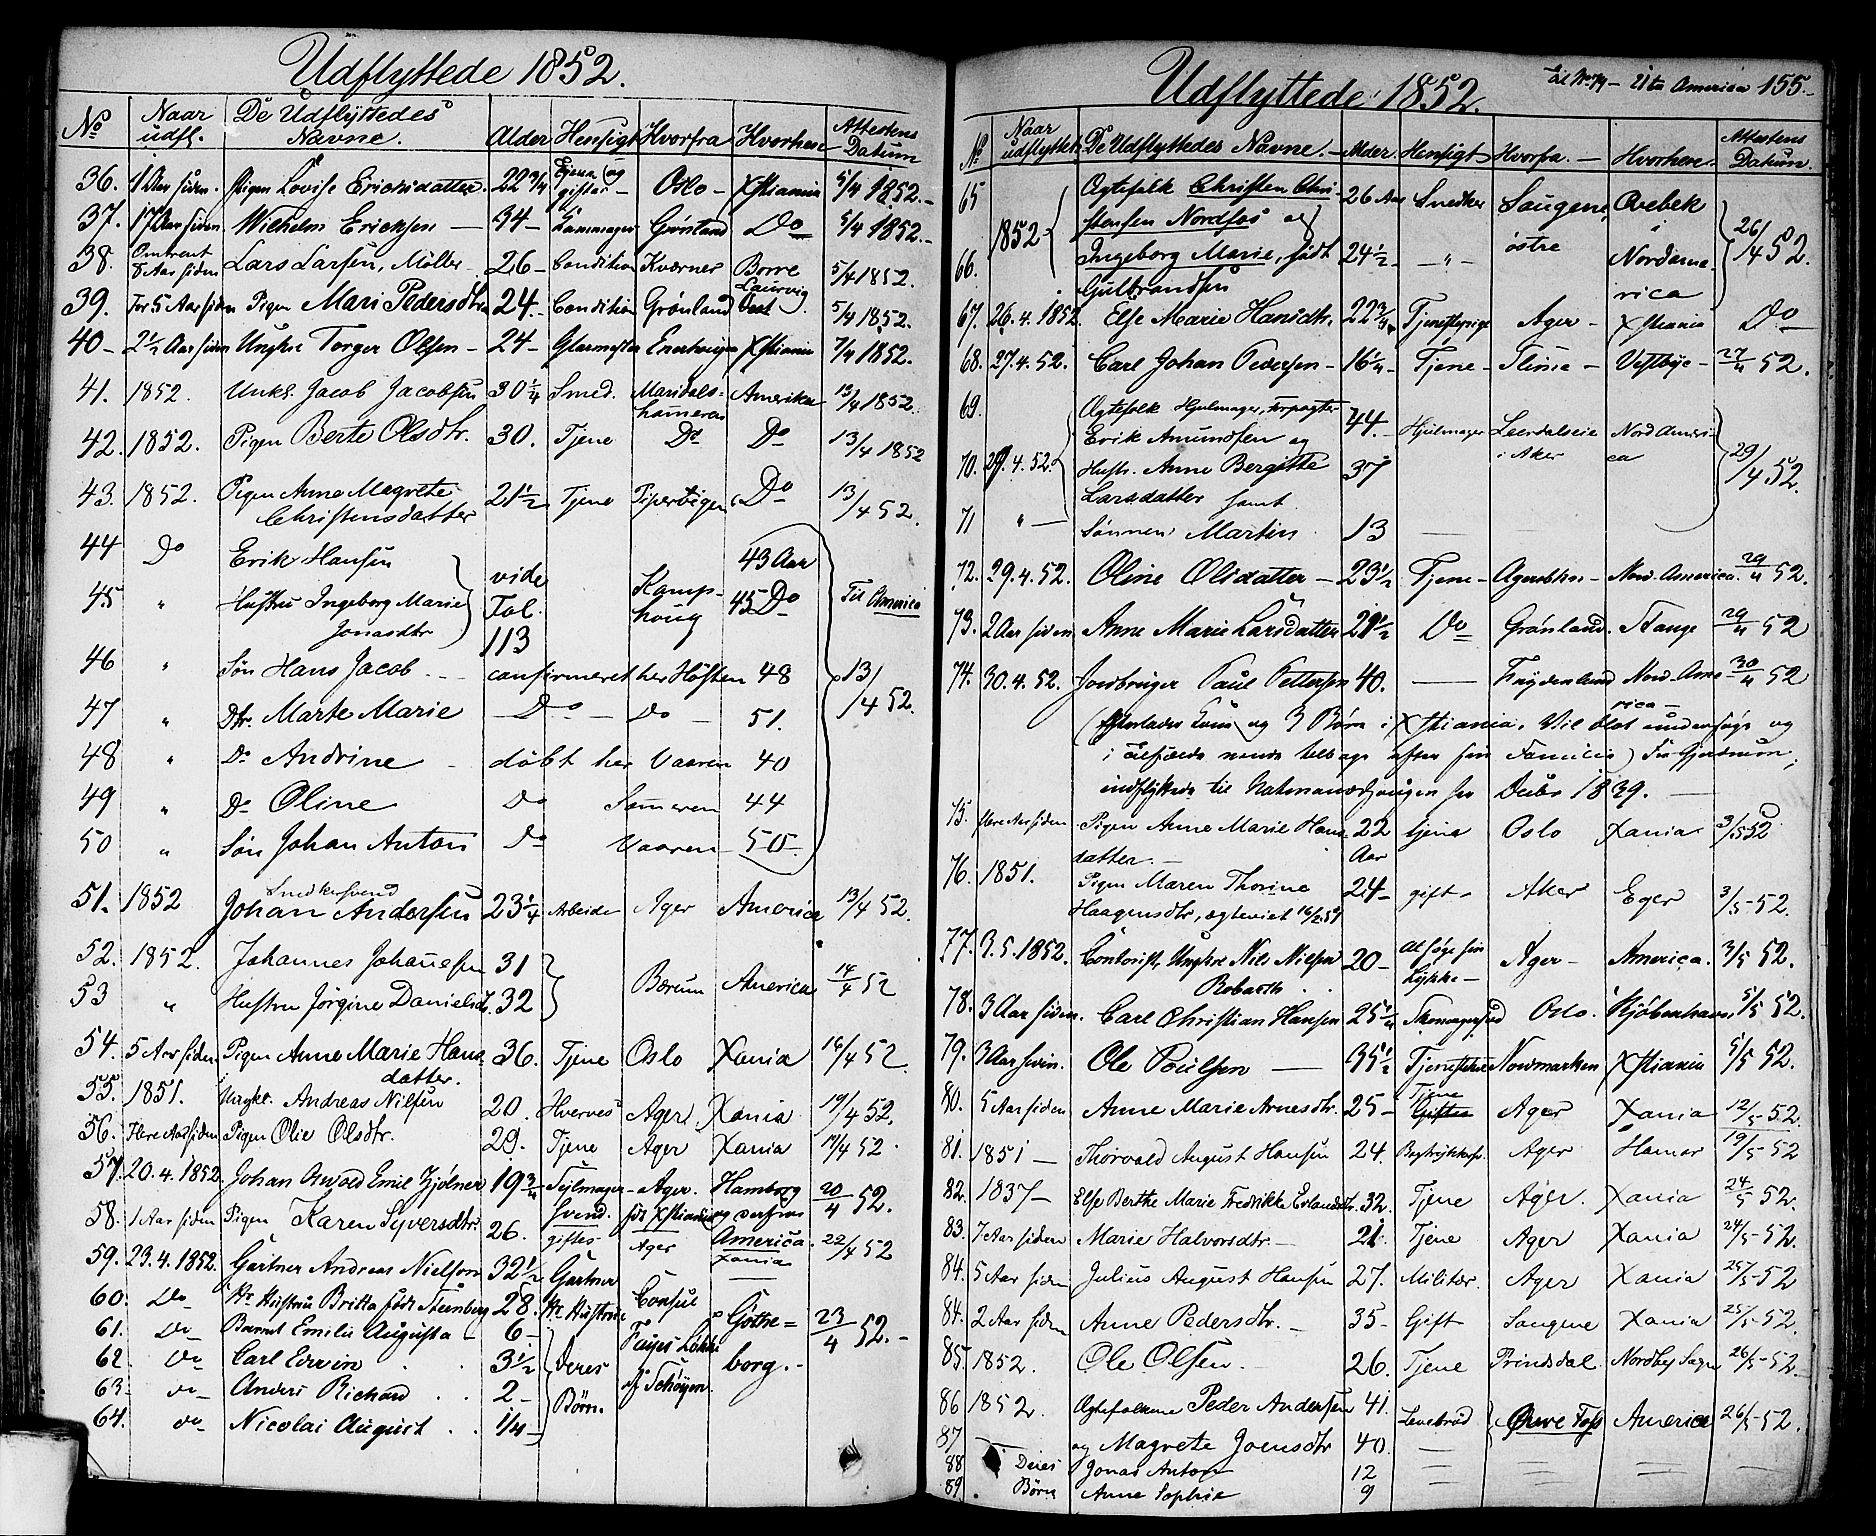 Udflyttede 1852.
No Naar udfl. De Udflyttedes Navne. Alder Hensigt Hvorfra Hvorhen Attestens Datum
36. 1 Aar siden. Pigen Lovise Ericksdatter. 22 3/4 Tjene og giftes Oslo Xstiania 5/4 1852.
37. 17 Aar siden Wilhelm Ericksen 34 Grønland Do 5/4 1852.
38. Omtrent 8 Aar siden Lars Larsen, Møller 26 Condition Kværner Borre 5/4 1852.
39. For 5 Aar siden Pigen Mari Pedersdtr 24. Condition Grønland Laurvig 5/4 1852.
40 2 1/2 Aar siden Ungkr Torger Olsen 24 Glarmester Xstiania 7/4 1852.
41. 1852. Unkl. Jacob Jacobsen 30 1/4 Smed. Maridalshameren Amerika 13/4 1852.
42. 1852. Pigen Berte Olsdtr. 30. Tjene Do Do 13/4 1852
43. 1852. Pigen Anne Magrete Christensdatter 21 1/2 Tjene Pipervigen Do 13/4 52.
44 Do Erik Hansen vide Fol. 113 Kamphoug 43 Aar
45 " Hustru Ingeborg Marie Jonasdtr 45 Do Til America
46 " Søn Hans Jacob confirmeret her Høsten 48 13/4 52.
47 " Dtr. Marte Marie Do Do 51.
48 " Do Andrine døbt her Vaaren 40
49 " Do Oline Do Sommeren 44
50 " Søn Johan Anton Do Vaaren 50.
51. 1852 Snedkersvend Johan Andersen 23 1/4 Arbeide Ager America 13/4 52.
52. 1852. Johannes Johanesen 31 Bærum America 14/4 52
53 " Hustru Jørgine Danielsd. 32
54. 5 Aar siden. Pigen Anne Marie Hansdatter. 36. Tjene Oslo Xania 16/4 52.
55. 1851. Ungkr. Andreas Nilsen 20. Hverves Ager Xania 19/4 52.
56. Flere Aar siden Pigen Olie Olsdtr. 29. Tjene Ager Xania 17/4 52.
57. 20.4.1852. Johan Oswald Emil Hjølner 19 3/4 Seilmagersvend. Ager. Hamborg og derfra America 20/4 52.
58. 1 Aar siden Pigen Karen Syversdtr 26. giftes Ager Xania 22/4 52
59. 23.4.1852. Gartner Andreas Nielsen 32 1/2 Gartner Consul
60. Do Hustru Britta født Steenberg 28. Hustrue Gothe=
61. Do Barnet Emilie Augusta 6 Deres 23/4 52.
62 Do Carl Edvin 3 1/2 Børn af Tchøyen borg.
63 do Anders Richard 2
64. do Nicolai August 1/4
Udflyttede 1852. til No 79 Ude America 155
No Naar udflyttet De Udflyttedes Navne. Alder Hensigt Hvorfra. Hvorhene. Attestens Datum.
65 1852 Ægtefolk Christen Christensen Nordfos og 26 Aar Snedker Saugene, østre Ovebek i Nordamerica 26/4 52.
66. Ingeborg Marie, født Gulbrandsen 24 1/2
67. 26.4.1852. Else Marie Hansdtr. 22 3/4 Tjenestepige Ager Xstiania Do
68. 27.4.52. Carl Johan Pedersen 16 1/4 Tjene Vestbye 27/4 52.
69. Ægtefolk Hjulmager, Forpagter Erik Amundsen og 44. Hjulmager i Aker Nord America 29/4 52.
70. 29.4.52. Hustr. Anne Bergitte Larsdatter samt 37
71 " Sønnen Martin 13
72. 29.4.52. Oline Olsdatter 23 1/2 Tjene Nord America. 29/4 52.
73. 2 Aar siden Anne Marie Larsdatter 21 1/2 Do Grønland. Stange 29/4 52
74. 30.4.52. Jordbruger Paul Pettersen 40. Frydenlund Nord-America 30/4 52
(efterlader Kone og 3 Børn i Xstiania. Vil blot undersøge og
i tilfælde vende tilbage efter sin Familie) Fra Gjerdrum,
indflyttede til fra Decbr 1839.
75. flere Aar siden Pigen Anne Marie Hansdatter. 22 Aar tjene Oslo Xania 3/5 52
76. 1851. Pigen Maren Thorine Haagensdtr, ægteviet 24 gift Aker Eger 3/5 52.
77. 3.5.1852. Contorist, Ungkr Nils Nilsen 20 At søge sin Lykke Ager America. 3/5 52.
78. 3 Aar siden. Carl Christian Hansen 25 1/4 Skomagersvd Oslo. Kjøbenhavn. 5/5 52.
79. 3 Aar siden. Ole Poulsen 35 1/2 Nordmarken Xstiania 5/5 52.
80. 5 Aar siden Anne Marie Arnesdtr. 25 Tjene Giftes Ager Xania 12/5 52.
81. 1851 Thorvald August Hansen 24. Ager Hamar 19/5 52
82. 1837 Else Berthe Marie Fredrikke Erlandsdtr. 32. Tjene Ager. Xania 24/5 52.
83. 7 Aar siden Marie Halvorsdtr. 21 Tjene Ager Xania 24/5 52.
84. 5 Aar siden Julius August Hansen 27. Militær. Ager Xania 25/5 52
84. 2 Aar siden Anne Pedersdtr. 35 Gift Saugene Xania 25/5 52.
85. 1852. Ole Olsen. 26. Tjene Prindsdal. Nordby Sogn 26/5 52.
86 1852. Ægtefolkene Peder Andersen 41. Levebrød Øvre Foss America 26/5 52.
87 og Magrete Joensdtr 40.
88 Deres Jonas Anton 12
89. Børn Anne Sophie 9